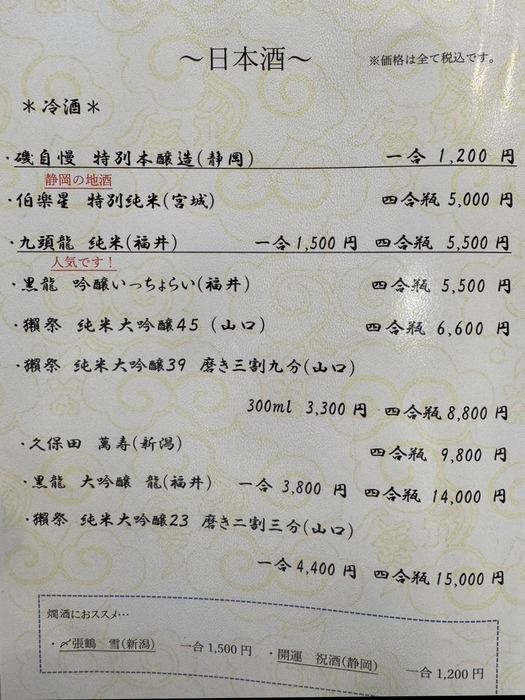 ～日本酒～
※価格は全て税込です。
＊冷酒＊
・磯自慢 特別本醸造(静岡) 一合 1,200 円
静岡の地酒
・伯楽星 特別純米(宮城) 四合瓶 5,000 円
・九頭龍 純米(福井) 一合 1,500 円 四合瓶 5,500 円
人気です！
・黒龍 吟醸いっちょらい(福井) 四合瓶 5,500 円
・獺祭 純米大吟醸45 (山口) 四合瓶 6,600 円
・獺祭 純米大吟醸39 磨き三割九分(山口)
300ml 3,300 円 四合瓶 8,800 円
・久保田 萬寿(新潟) 四合瓶 9,800 円
・黒龍 大吟醸 龍(福井) 一合 3,800 円 四合瓶 14,000 円
・獺祭 純米大吟醸23 磨き二割三分(山口)
一合 4,400 円 四合瓶 15,000 円
燗酒におススメ…
・〆張鶴 雪(新潟) 一合 1,500 円 ・開運 祝酒(静岡) 一合 1,200 円